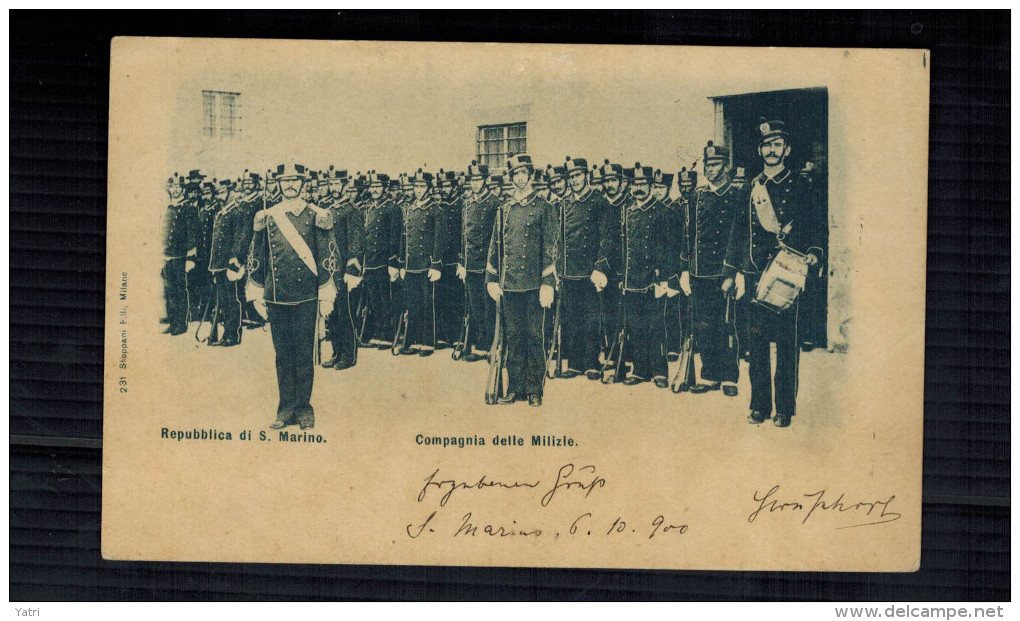 231 Stoppani F.lli. Milano
Repubblica di S. Marino.
Compagnia delle Milizie.
Ergebenen Gruß
S. Marino, 6. 10. 900
Yatri
www.delcampe.net